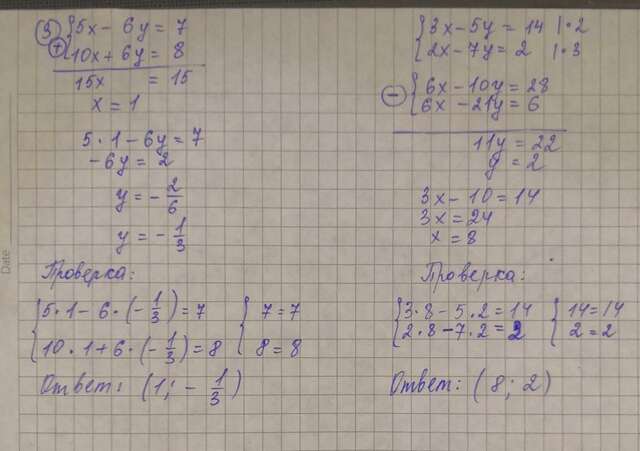 ③ {5x - 6y = 7
+ {10x + 6y = 8
15x = 15
x = 1
5 · 1 - 6y = 7
-6y = 2
y = - 2/6
y = - 1/3
Проверка:
{5 · 1 - 6 · (- 1/3) = 7 {7 = 7
{10 · 1 + 6 · (- 1/3) = 8 {8 = 8
Ответ: (1; - 1/3)
{3x - 5y = 14 | · 2
{2x - 7y = 2 | · 3
- {6x - 10y = 28
{6x - 21y = 6
11y = 22
y = 2
3x - 10 = 14
3x = 24
x = 8
Проверка:
{3 · 8 - 5 · 2 = 14 {14 = 14
{2 · 8 - 7 · 2 = 2 {2 = 2
Ответ: (8; 2)
Date